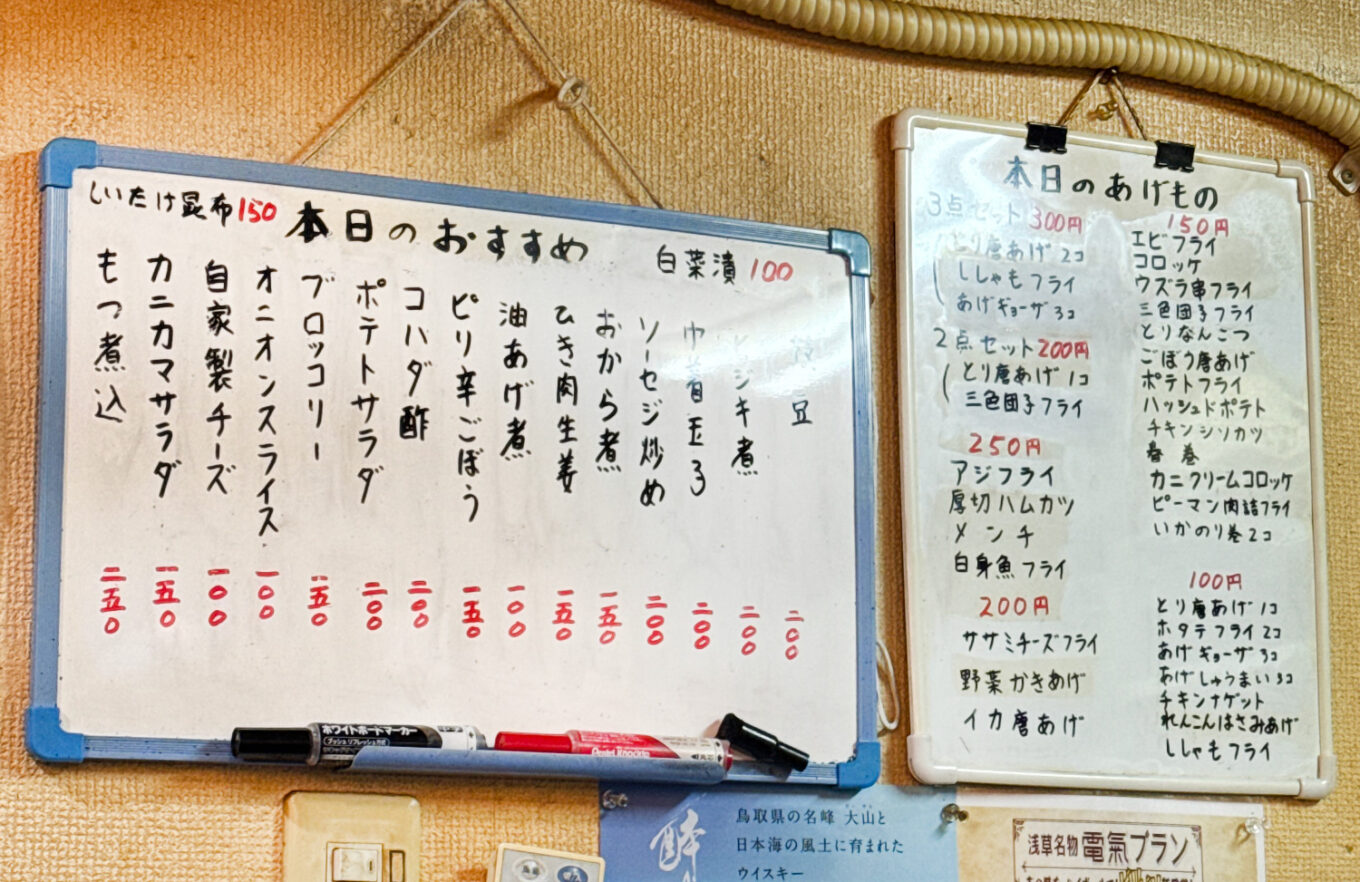 しいたけ昆布150
本日のおすすめ
白菜漬 100
枝豆 二〇〇
ヒジキ煮 二〇〇
巾着玉子 二〇〇
ソーセジ炒め 二〇〇
おから煮 一五〇
ひき肉生姜 一五〇
油あげ煮 一〇〇
ピリ辛ごぼう 一五〇
コハダ酢 二〇〇
ポテトサラダ 二〇〇
ブロッコリー 一五〇
オニオンスライス 一〇〇
自家製チーズ 一〇〇
カニカマサラダ 一五〇
もつ煮込 二五〇
ホワイトボードマーカー
プッシュリフレッシュ方式
Pentel Knockle
本日のあげもの
3点セット300円
とり唐あげ 2コ
ししゃもフライ
あげギョーザ3コ
2点セット200円
とり唐あげ 1コ
三色団子フライ
250円
アジフライ
厚切ハムカツ
メンチ
白身魚フライ
200円
ササミチーズフライ
野菜かきあげ
イカ唐あげ
150円
エビフライ
コロッケ
ウズラ串フライ
三色団子フライ
とりなんこつ
ごぼう唐あげ
ポテトフライ
ハッシュドポテト
チキンシソカツ
春巻
カニクリームコロッケ
ピーマン肉詰フライ
いかのり巻2コ
100円
とり唐あげ 1コ
ホタテフライ2コ
あげギョーザ3コ
あげしゅうまい3コ
チキンナゲット
れんこんはさみあげ
ししゃもフライ
鳥取県の名峰 大山と
日本海の風土に育まれた
ウイスキー
浅草名物 電氣ブラン